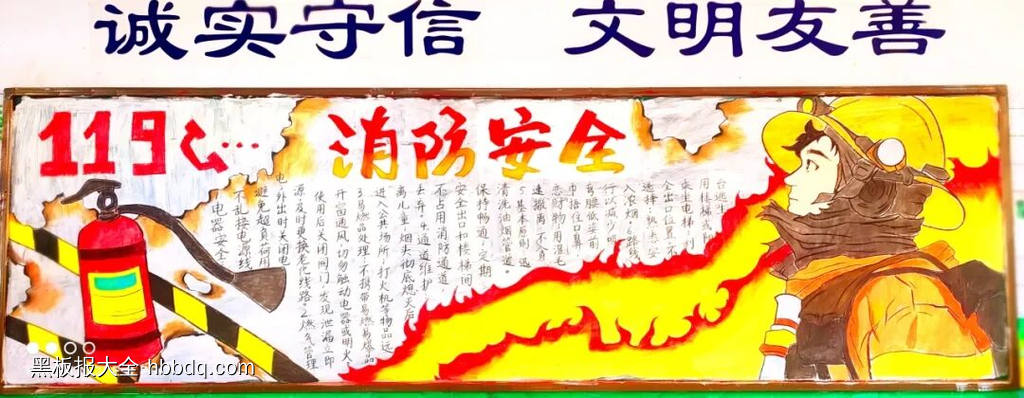 诚实守信 文明友善
119 消防安全
电器安全
不乱接电源线
避免超负荷用
电外出时关闭电
源及时更换老化线路。2燃气管理
使用后关闭阀门 发现泄漏立即
开窗通风,切勿触动电器或明火
3易燃品处理:不携带易燃易爆品
进入公共场所,打火机等物品远
离儿童,烟头彻底熄灭后
丢弃。4通道维护
不占用消防通道
安全出口和楼梯间
保持畅通,定期
清洗油烟管道。
5基本原则 迅
速撤离,不贪身
恋财物,用湿毛
巾捂住口鼻
弯腰低姿前
行以减少吸
入浓烟。6路线
选择
全出口位置,不
乘坐电梯,利
用楼梯或阳
台逃生
黑板报大全 hbbdq.com